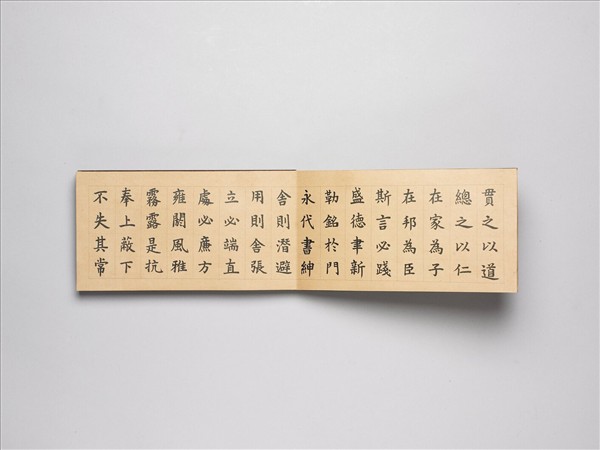 貫之以道
總之以仁
在家為子
在邦為臣
斯言必踐
盛德聿新
勒銘於門
永代書紳
舍則潛避
用則舍張
立必端直
處必廉方
雍閼風雅
霧露是抗
奉上蔽下
不失其常